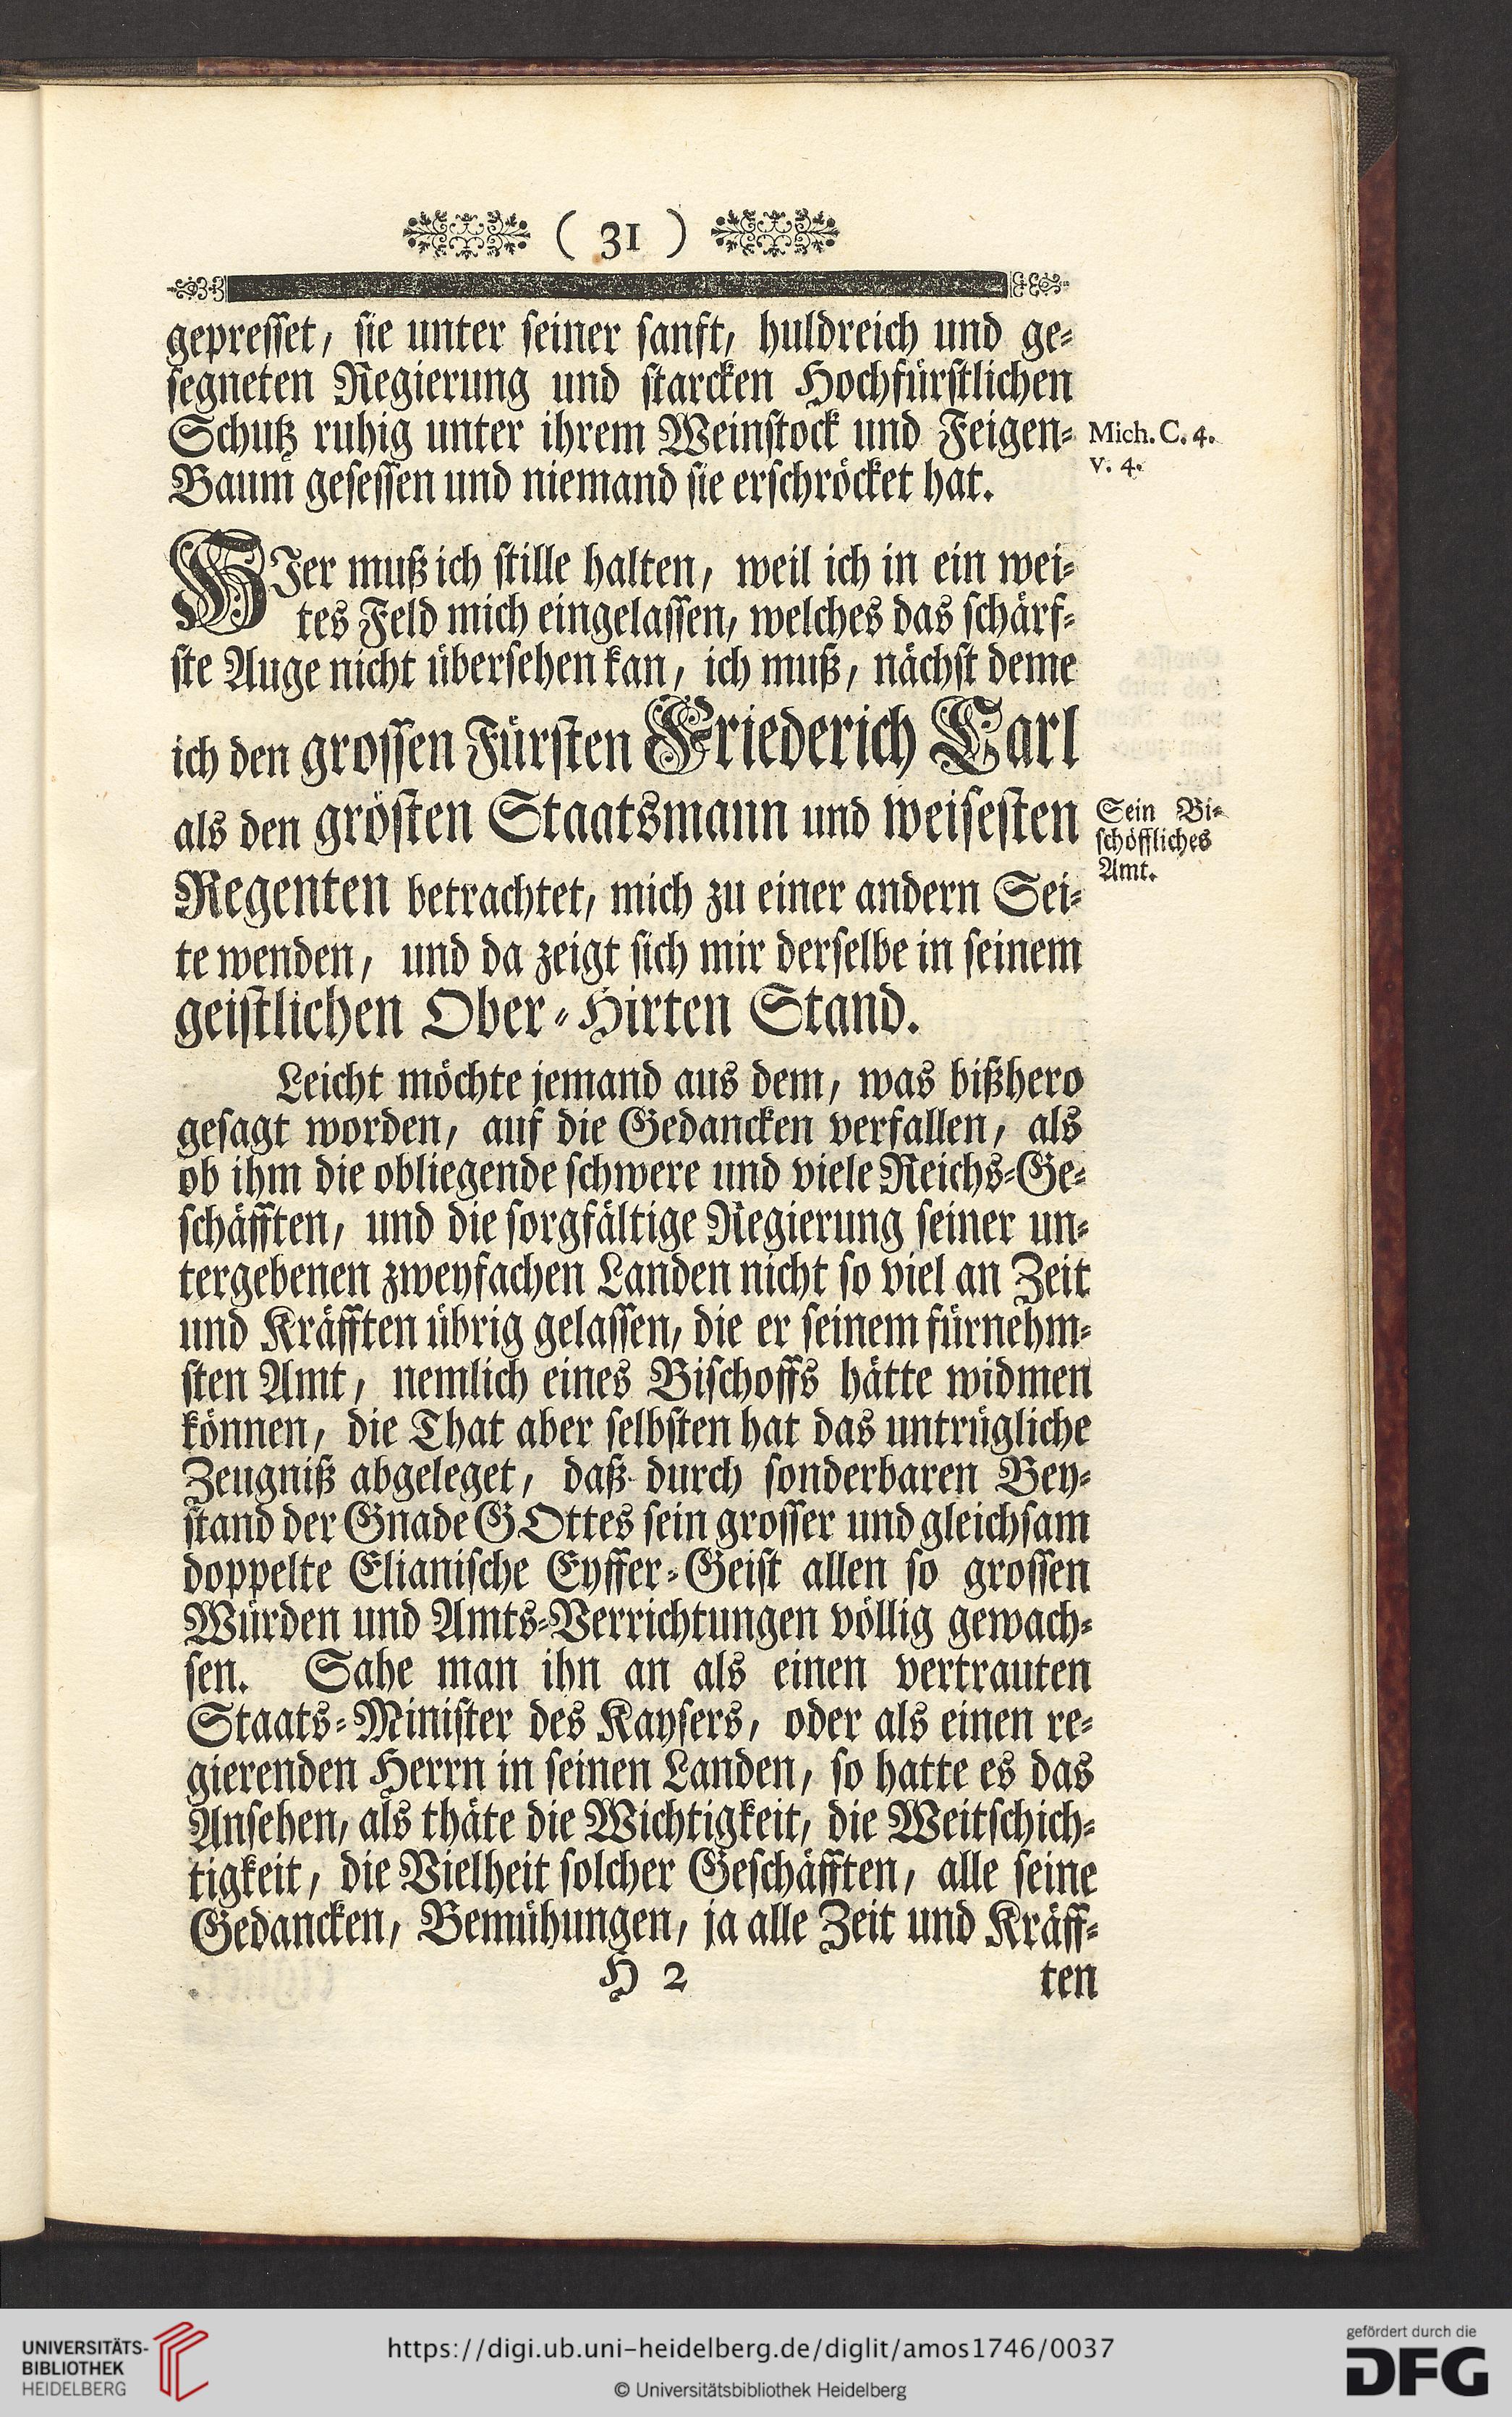 ( 31 )
gepresset, sie unter seiner sanft, huldreich und ge-
segneten Regierung und starcken Hochfürstlichen
Schutz ruhig unter ihrem Weinstock und Feigen-
Baum gesessen und niemand sie erschröcket hat.
Mich. C. 4.
v. 4.
HJer muß ich stille halten, weil ich in ein wei-
tes Feld mich eingelassen, welches das schärf-
ste Auge nicht übersehen kan, ich muß, nächst deme
ich den grossen Fürsten Friederich Carl
als den grösten Staatsmann und weisesten
Regenten betrachtet, mich zu einer andern Sei-
te wenden, und da zeigt sich mir derselbe in seinem
geistlichen Ober-Hirten Stand.
Sein Bi-
schöffliches
Amt.
Leicht möchte jemand aus dem, was bißhero
gesagt worden, auf die Gedancken verfallen, als
ob ihm die obliegende schwere und viele Reichs-Ge-
schäfften, und die sorgfältige Regierung seiner un-
tergebenen zweyfachen Landen nicht so viel an Zeit
und Kräfften übrig gelassen, die er seinem fürnehm-
sten Amt, nemlich eines Bischoffs hätte widmen
können, die That aber selbsten hat das untrügliche
Zeugniß abgeleget, daß durch sonderbaren Bey-
stand der Gnade GOttes sein grosser und gleichsam
doppelte Elianische Eyffer-Geist allen so grossen
Würden und Amts-Verrichtungen völlig gewach-
sen. Sahe man ihn an als einen vertrauten
Staats-Minister des Kaysers, oder als einen re-
gierenden Herrn in seinen Landen, so hatte es das
Ansehen, als thäte die Wichtigkeit, die Weitschich-
tigkeit, die Vielheit solcher Geschäfften, alle seine
Gedancken, Bemühungen, ja alle Zeit und Kräff-
H 2 ten
UNIVERSITÄTS-
BIBLIOTHEK
HEIDELBERG
https://digi.ub.uni-heidelberg.de/diglit/amos1746/0037
© Universitätsbibliothek Heidelberg
gefördert durch die
DFG